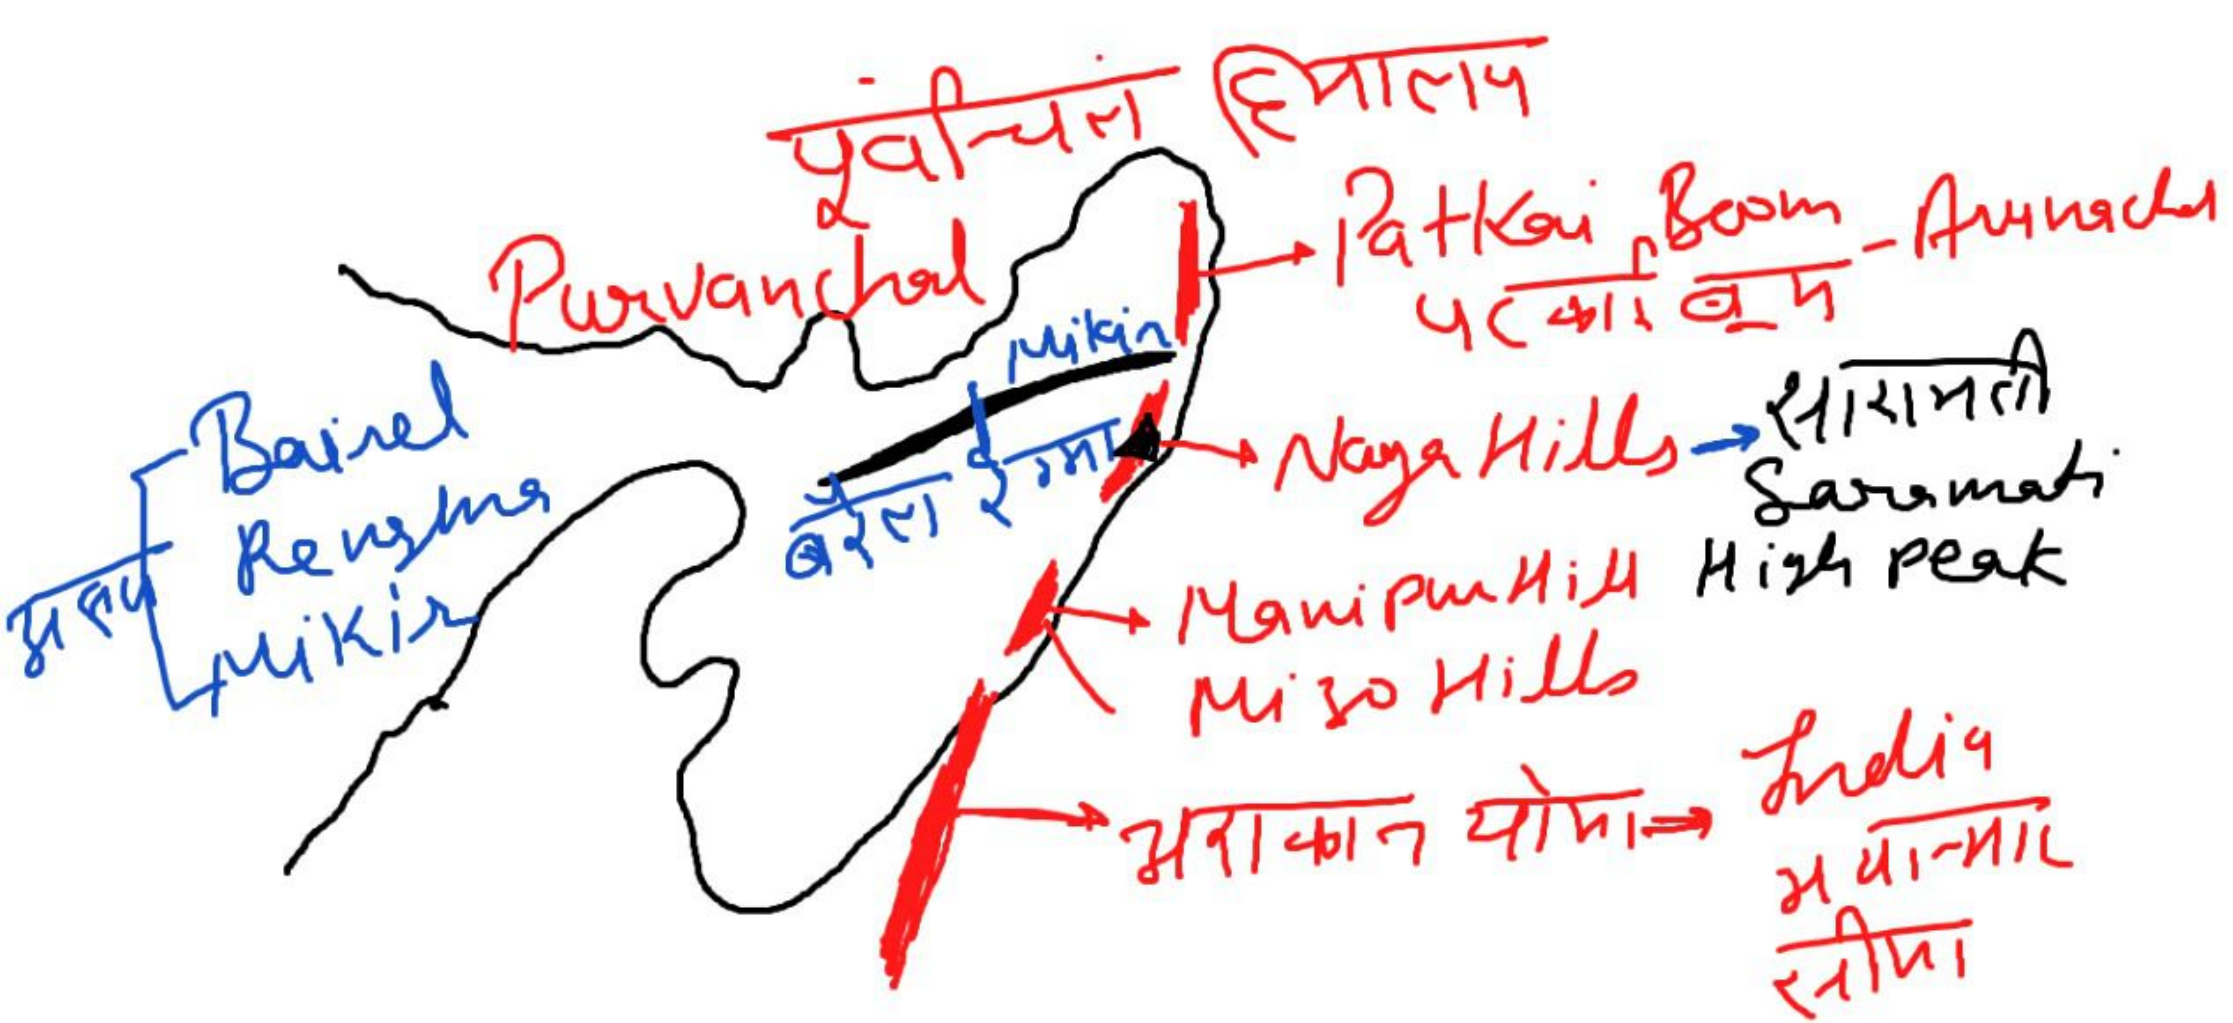 पूर्वांचल हिमालय
Purvanchal
Patkai Boom - Arunachal
पटकाई बूम
Mikir
बरेल रेंगमा
Naga Hills → सारामती
Saramati
High peak
Manipur Hill
Mizo Hills
अराकान योमा → India
म्यान्मार
सीमा
Bairel
Rengma
Mikir